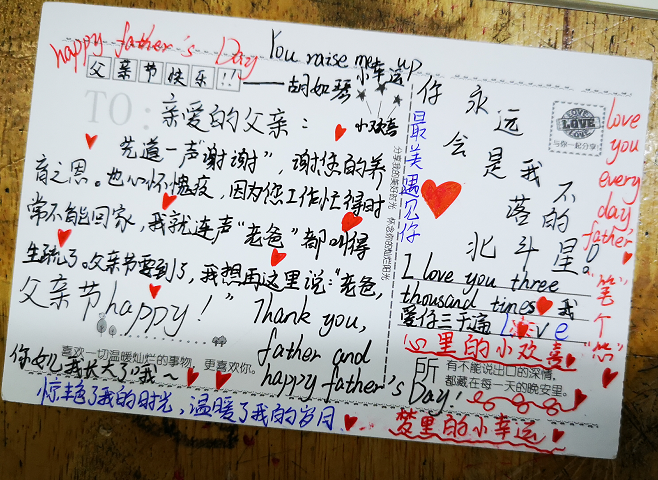 happy father's Day
You raise me up
父亲节快乐!!
——胡如琴
小幸运
小欢喜
TO:
亲爱的父亲:
先道一声"谢谢",谢您的养
育之恩。也心怀愧疚,因为您工作忙得时
常不能回家,我就连声"老爸"都叫得
生疏了。父亲节要到了,我想再这里说:"老爸,
父亲节happy!"
Thank you,
father and
happy father's Day!
喜欢一切温暖灿烂的事物,更喜欢你。
你女儿我长大了哦~
惊艳了我的时光,温暖了我的岁月
最美遇见你
你永远
会是我不
落的
北斗星。
LOVE
与你一起分享
I love you three
thousand times 我
爱你三千遍 love
心里的小欢喜
所
有不能说出口的深情,
都藏在每一天的晚安里。
梦里的小幸运
love
you
every
day,
father,
"笔"
个
"芯"